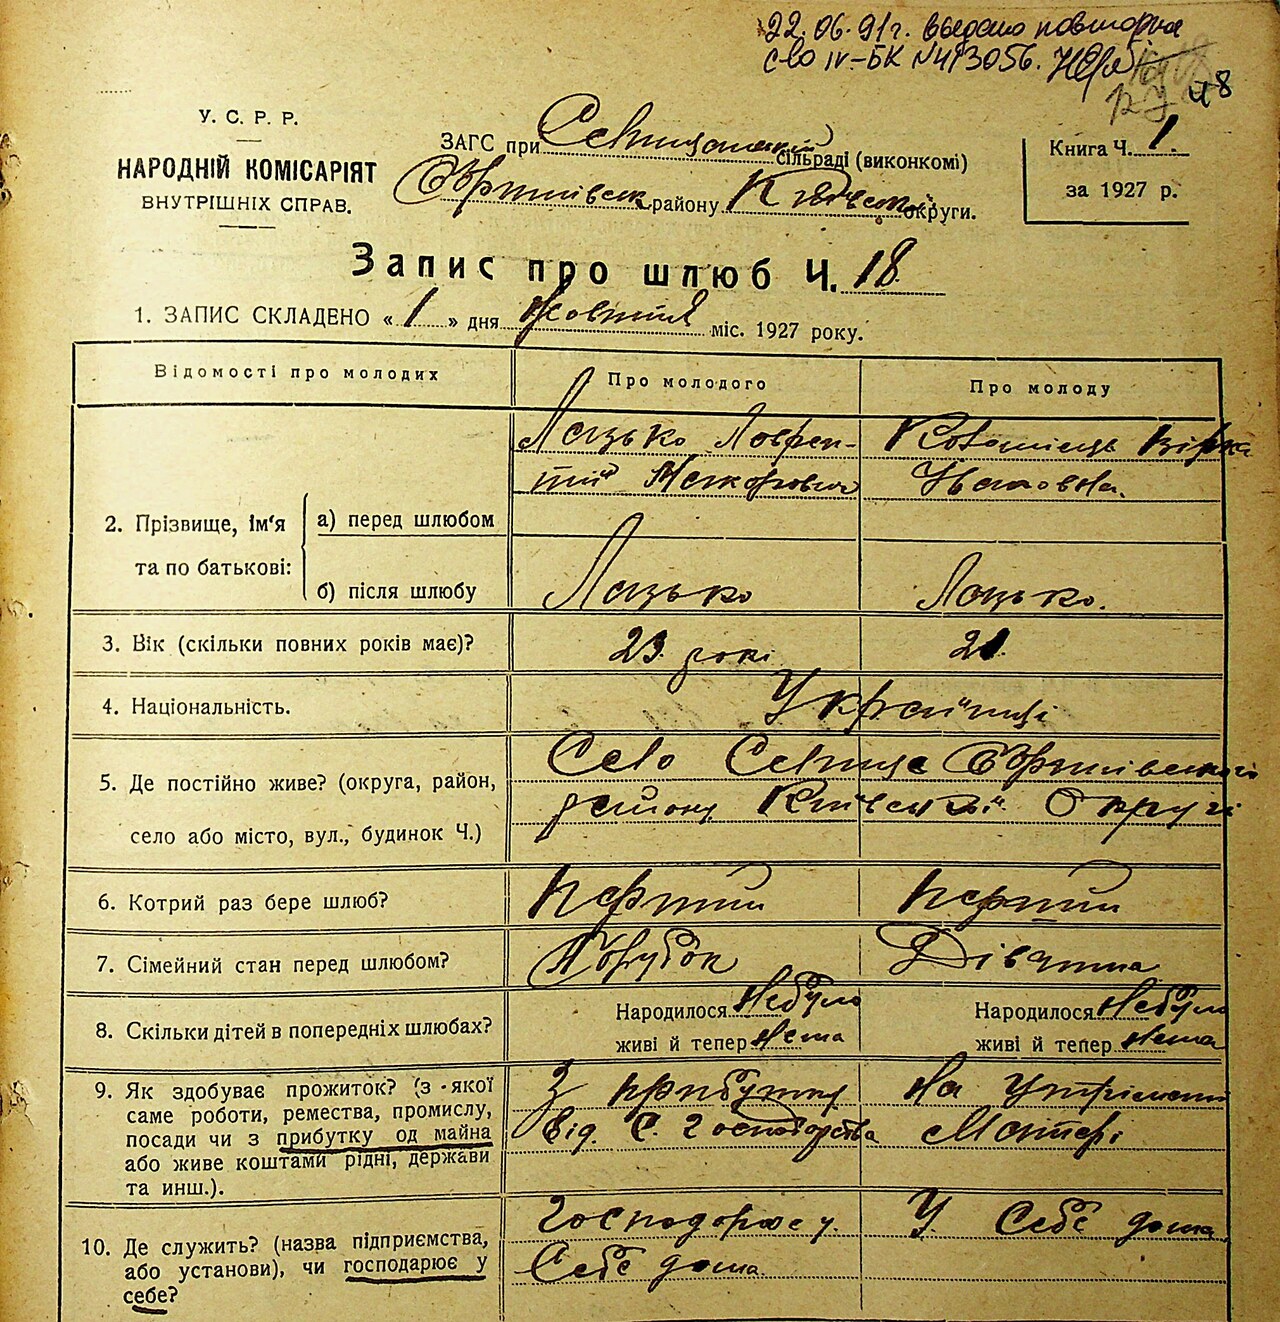 22.06.91г. выдано повторное
с-во IV-БК №413056.
48
У. С. Р. Р.
НАРОДНІЙ КОМІСАРІЯТ
ВНУТРІШНІХ СПРАВ.
ЗАГС при сільраді (виконкомі)
району Київської округи.
Книга Ч. 1.
за 1927 р.
Запис про шлюб Ч. 18
1. ЗАПИС СКЛАДЕНО « 1 » дня жовтня міс. 1927 року.
Відомості про молодих
Про молодого
Про молоду
2. Прізвище, ім'я
та по батькові:
а) перед шлюбом
Лазько Лаврен-
тій Макарович
Коломієць Вірка
Івановна.
б) після шлюбу
Лазько
Лазько.
3. Вік (скільки повних років має)?
23 роки
21
4. Національність.
Українці
5. Де постійно живе? (округа, район,
село або місто, вул., будинок Ч.)
Село
району Київської Округи
6. Котрий раз бере шлюб?
перший
перший
7. Сімейний стан перед шлюбом?
Парубок
Дівчина
8. Скільки дітей в попередніх шлюбах?
Народилося Небуло
живі й тепер нема
Народилося Небуло
живі й тепер нема
9. Як здобуває прожиток? (з якої
саме роботи, ремества, промислу,
посади чи з прибутку од майна
або живе коштами рідні, держави
та инш.).
З прибутку
від. С. Господарства
на утрімані
Матері
10. Де служить? (назва підприємства,
або установи), чи господарює у
себе?
Господарює у
Себе дома
У Себе дома